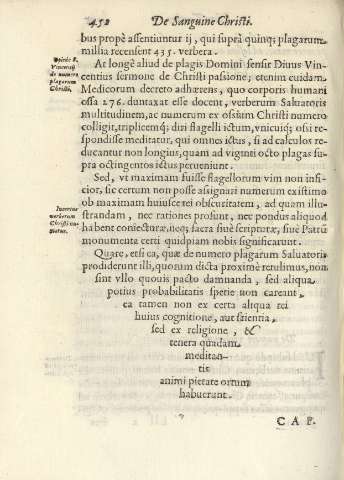 452 De Sanguine Christi.
bus propè assentiuntur ij, qui suprà quinq; plagarum
millia recensent 435. verbera.
Opinio S.
Vincentij
de numero
plagarum
Christi.
At longè aliud de plagis Domini sensit Diuus Vin-
centius sermone de Christi passione; etenim cuidam
Medicorum decreto adhærens, quo corporis humani
ossa 276. duntaxat esse docent, verberum Saluatoris
multitudinem, ac numerum ex ossium Christi numero
colligit, triplicemq; diri flagelli ictum, vnicuiq; ossi re-
spondisse meditatur, qui omnes ictus, si ad calculos re-
ducantur non longius, quàm ad viginti octo plagas su-
pra octingentos ictus perueniunt.
Sed, vt maximam fuisse flagellorum vim non infi-
cior, sic certum non posse assignari numerum existimo
ob maximam huiusce rei obscuritatem, ad quam illu-
Incertus
verberum
Christi nu-
merus.
strandam, nec rationes prosunt, nec pondus aliquod
habent coniecturæ, neq; sacra siuè scripturæ, siuè Patrũ
monumenta certi quidpiam nobis significarunt.
Quare, etsi ea, quæ de numero plagarum Saluatoris
prodiderunt illi, quorum dicta proximè retulimus, non
sint vllo quouis pacto damnanda, sed aliqua
potius probabilitatis spetie non careant,
ea tamen non ex certa aliqua rei
huius cognitione, aut scientia,
sed ex religione, &
tenera quadam
meditan-
tis
animi pietate ortum
habuerunt.
C A P.